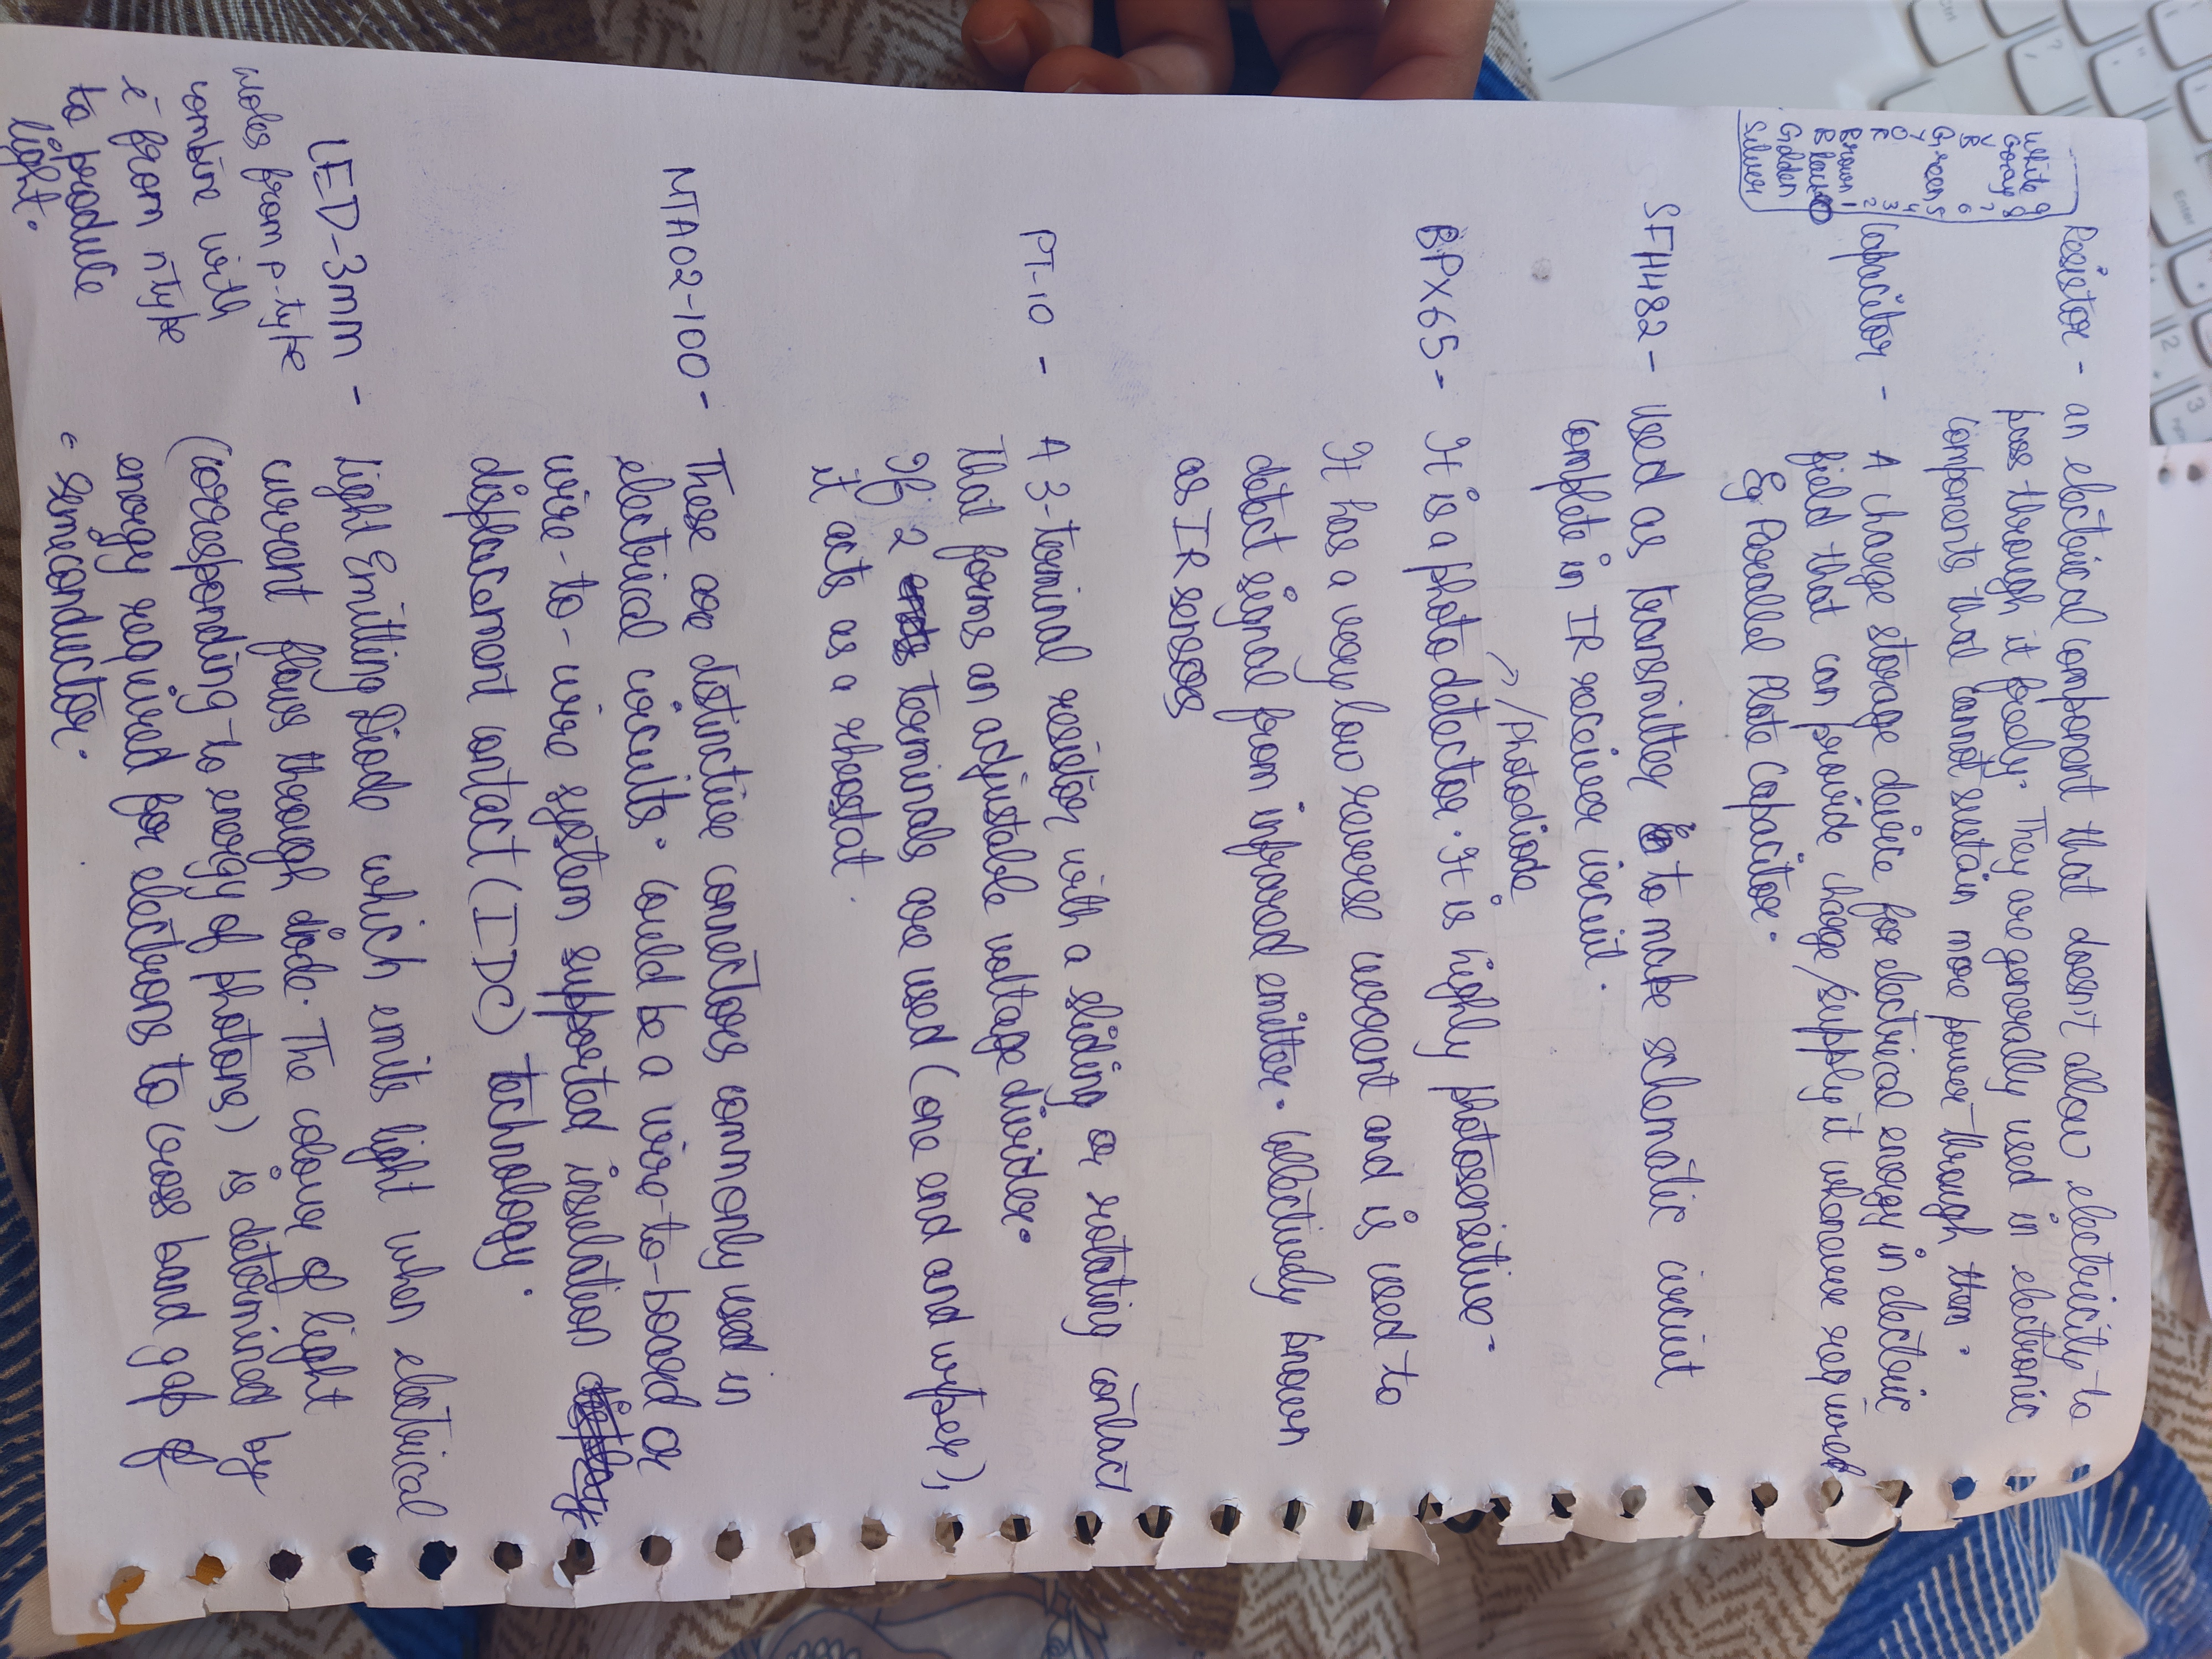 White 9
Gray 8
V 7
B 6
Green 5
Y 4
O 3
R 2
Brown 1
Black 0
Golden
Silver
Resistor - an electrical component that doesn't allow electricity to
pass through it freely. They are generally used in electronic
components that cannot sustain more power through them.
Capacitor - A charge storage device for electrical energy in electric
field that can provide charge/supply it whenever required
Eg Parallel Plate Capacitor.
SFH482 - Used as transmitter to make schematic circuit
complete in IR receiver circuit.
/photodiode
BPX65 - It is a photodetector. It is highly photosensitive.
It has a very low reverse current and is used to
detect signal from infrared emitter. Collectively known
as IR sensors
PT-10 - A 3-terminal resistor with a sliding or rotating contact
that forms an adjustable voltage divider.
If 2 terminals are used (one end and wiper),
it acts as a rheostat.
MTA02-100 - These are distinctive connectors commonly used in
electrical circuits. Could be a wire-to-board or
wire-to-wire system supported insulation
displacement contact (IDC) technology.
LED-3mm - Light Emitting Diode which emits light when electrical
current flows through diode. The colour of light
(corresponding to energy of photons) is determined by
energy required for electrons to cross band gap of
semeconductor.
holes from p-type
combine with
e⁻ from n type
to produce
light.